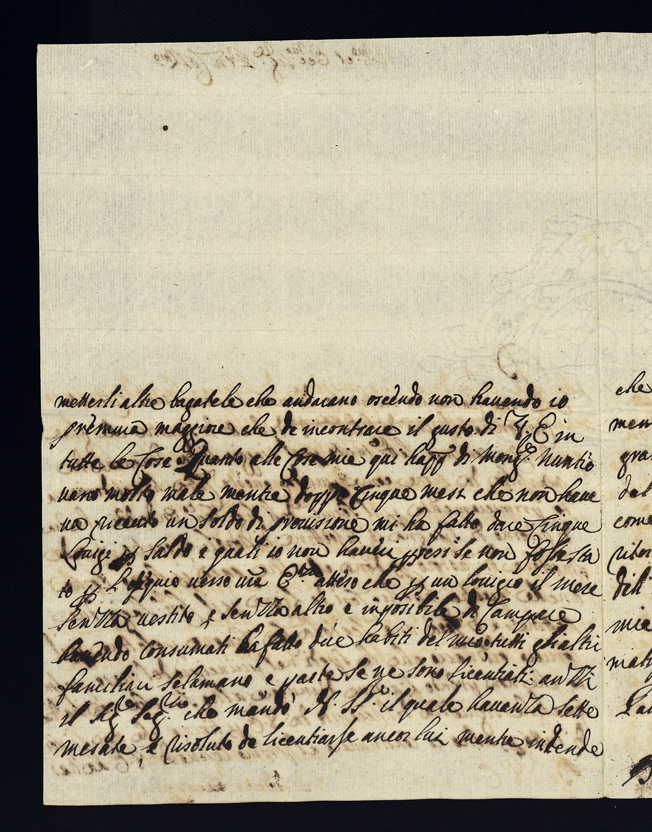 mettersi altre bagatele che andavano ocsèndo non havendo io
prèmura maggiore che de incontrare il gusto di V. E. in
tutte le Cose Quanto alle Cose mie qui l'app.to di Mong.r Nuntio
vano molto male mentre doppo Cinque mesi che non have
va riceuto un soldo di provisione mi ha fatto dare Cinque
Luigi p saldo e quali io non havèi presi se non fosse sta
to p l'ossequio verso V.ra E.za atteso che p un luigio il mese
senza vestito e senza altro è inposibile di Campare
havendo consumati ha fatto due habiti del mio tutti gli altri
familiari selamano e parte se ne sono licèntiati anzi
il Sig.re Seg.rio che mandò N. S.re il quale havanza sette
mesate, è risoluto de licentiarse ancor lui mentre intende
che
men
gra
del
come
ritor
dell
mie
mat